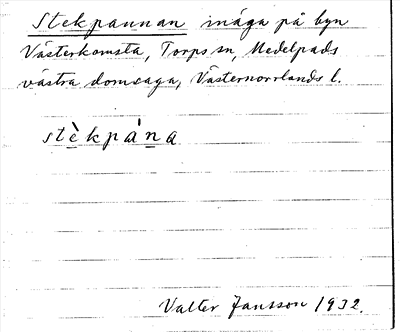 Stekpannan inäga på byn
Västerkomsta, Torps sn, Medelpads
västra domsaga, Västernorrlands l.
stèkpàna
Valter Jansson 1932.